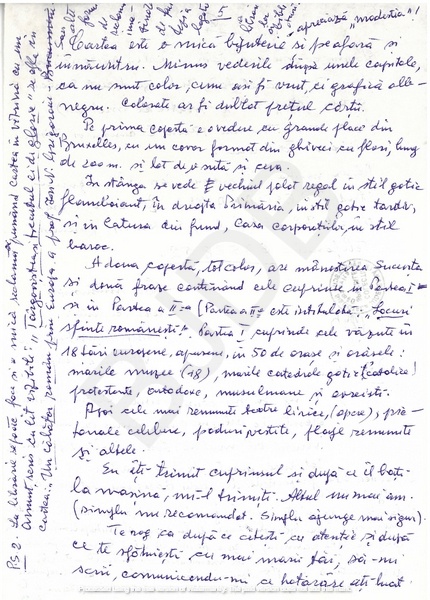 apreciază „modestia"!
Cartea este o mică bijuterie și pe afară și
înnăuntru. Minus vederile după unele capitole,
ca nu sunt color, cum ași fi vrut, ci grafică alb-
negru. Colorate ar fi dublat prețul cărții.
Pe prima copertă e o vedere cu grande place din
Bruxelles, cu un covor format din ghivece cu flori, lung
de 200 m. și lat de o sută și ceva.
În stânga se vede vechiul palat regal în stil gotic
flamboiant, în dreapta Primăria, în stil gotic tardiv,
și în latura din fund, Casa corporțiilor, în stil
baroc.
A doua copertă, tot color, are mănăstirea Sucevita
și două fraze conținând cele cuprinse în Partea I-
și în Partea a II-a (Partea a II-a este intitulată: „Locuri
sfinte românești". Partea I, cuprinde cele văzute în
18 țări europene, apusene, în 50 de orașe și orășele:
marile muzee (48), marile catedrale gotice (catolice)
protestante, ortodoxe, musulmane și ovreiești.
Apoi cele mai renumite teatre lirice, (opere), pie-
tonale celebre, poduri vestite, plaje renumite
și altele.
Eu îți trimit cuprinsul și după ce îl bați
la mașină, mi-l trimiți. Altul nu mai am.
(simplu nu recomandat. Simplu ajunge mai sigur).
Te rog ca după ce citești cu atenție și după
ce te sfătuiești cu mai marii tăi, să-mi
scrii, comunicându-mi ce hotărâre ați luat.
PS 2. La librărie se poate face și o mică reclamă punând Cartea în vitrină cu un
anunț scris cu litere vizibile: „
Cartea: Un călător român prin Europa a prof. Gheorghe Grigoriu-